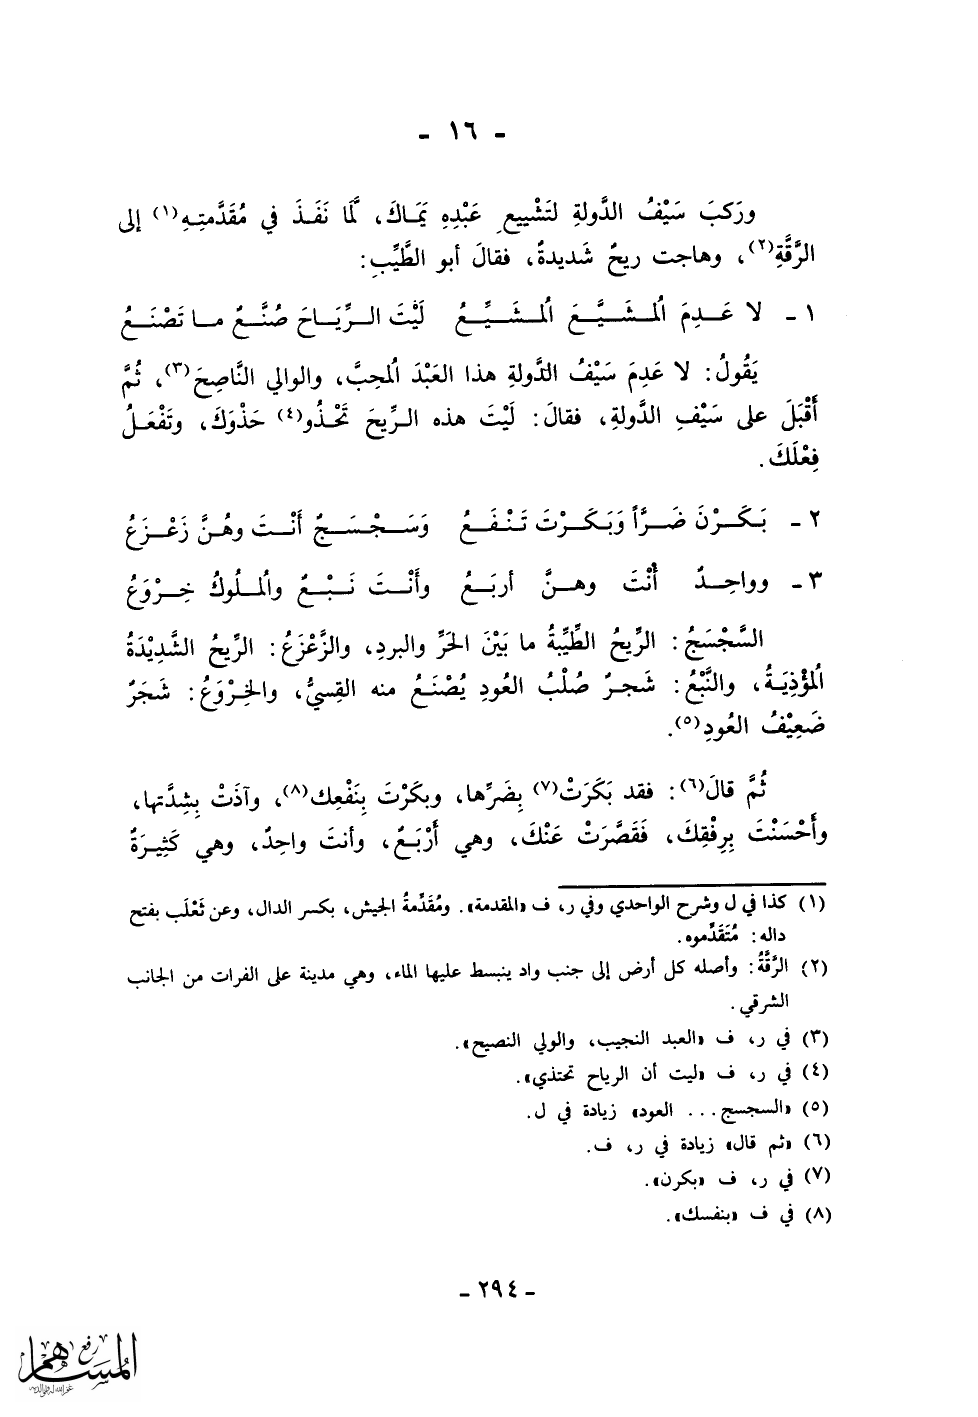 - ١٦ -
وركبَ سَيْفُ الدَّولةِ لتَشْييعِ عَبْدِهِ يَمَاكَ، لمَّا نَفَذَ في مُقَدَّمتِهِ(١) إلى
الرَّقَّةِ(٢)، وهاجت ريحٌ شَديدةٌ، فقالَ أبو الطَّيِّبِ:
١ - لا عَدِمَ اُلمشَيَّعَ اُلمشَيِّعُ لَيْتَ الرِّيَاحَ صُنَّعٌ ما تَصْنَعُ
يَقُولُ: لا عَدِمَ سَيْفُ الدَّولةِ هذا العَبْدَ اُلمحِبَّ، والوالي النَّاصِحَ(٣)، ثُمَّ
أَقْبَلَ على سَيْفِ الدَّولةِ، فقالَ: لَيْتَ هذه الريحَ تَحْذُو(٤) حَذْوَكَ، وتَفْعَلُ
فِعْلَكَ.
٢ - بَكَرْنَ ضَرَّاً وَبَكَرْتَ تَنْفَعُ وَسَجْسَجٌ أَنْتَ وهُنَّ زَعْزَعُ
٣ - وواحِدٌ أَنْتَ وهنَّ أربَعُ وأَنْتَ نَبْعٌ واُلملُوكُ خِرْوَعُ
السَّجْسَجُ: الرِّيحُ الطِّيِّبةُ ما بَيْنَ الحَرِّ والبردِ، والزَّعْزَعُ: الريحُ الشَّدِيْدَةُ
اُلمؤْذِيَةُ، والنَّبْعُ: شَجرٌ صُلْبُ العُودِ يُصْنَعُ منه القِسيُّ، والخِرْوَعُ: شَجَرٌ
ضَعِيْفُ العُودِ(٥).
ثُمَّ قالَ(٦): فقد بَكَرَتْ(٧) بِضَرِّها، وبكَرْتَ بِنَفْعِك(٨)، وآذَتْ بِشِدَّتها،
وأَحْسَنْتَ بِرِفْقِكَ، فَقَصَّرَتْ عَنْكَ، وهي أَرْبَعٌ، وأنتَ واحِدٌ، وهي كَثِيرَةٌ
(١) كذا في ل وشرح الواحدي وفي ر، ف «المقدمة». ومُقَدِّمةُ الجيش، بكسر الدال، وعن ثَعْلَب بفتح
داله: مُتَقَدِّموه.
(٢) الرَّقَّةُ: وأصله كل أرض إلى جنب واد ينبسط عليها الماء، وهي مدينة على الفرات من الجانب
الشرقي.
(٣) في ر، ف «العبد النجيب، والولي النصيح».
(٤) في ر، ف «ليت أن الرياح تحتذي».
(٥) «السجسج... العود» زيادة في ل.
(٦) «ثم قال» زيادة في ر، ف.
(٧) في ر، ف «بكرن».
(٨) في ف «بنفسك».
- ٢٩٤ -
رفع
المساهم